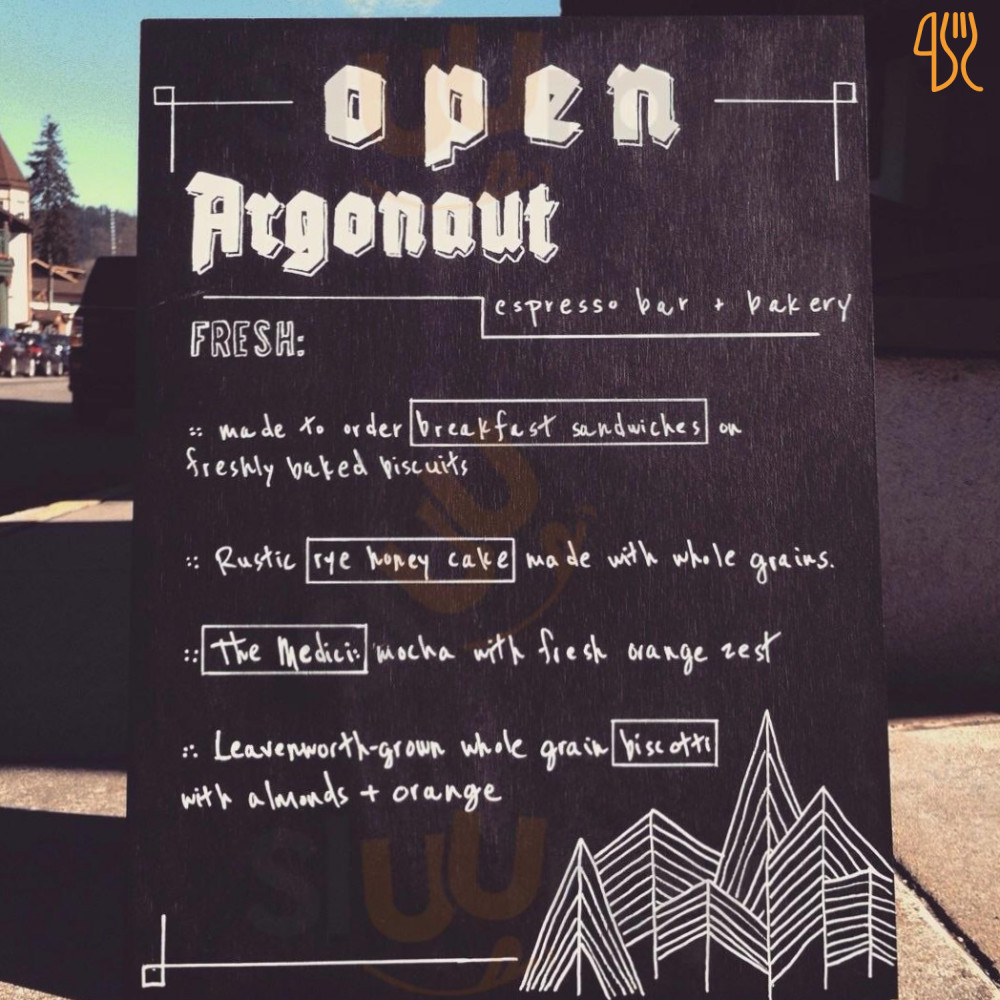 open
Argonaut
espresso bar + bakery
FRESH:
:: made to order breakfast sandwiches on
freshly baked biscuits
:: Rustic rye honey cake made with whole grains.
:: The Medici: mocha with fresh orange zest
:: Leavenworth-grown whole grain biscotti
with almonds + orange